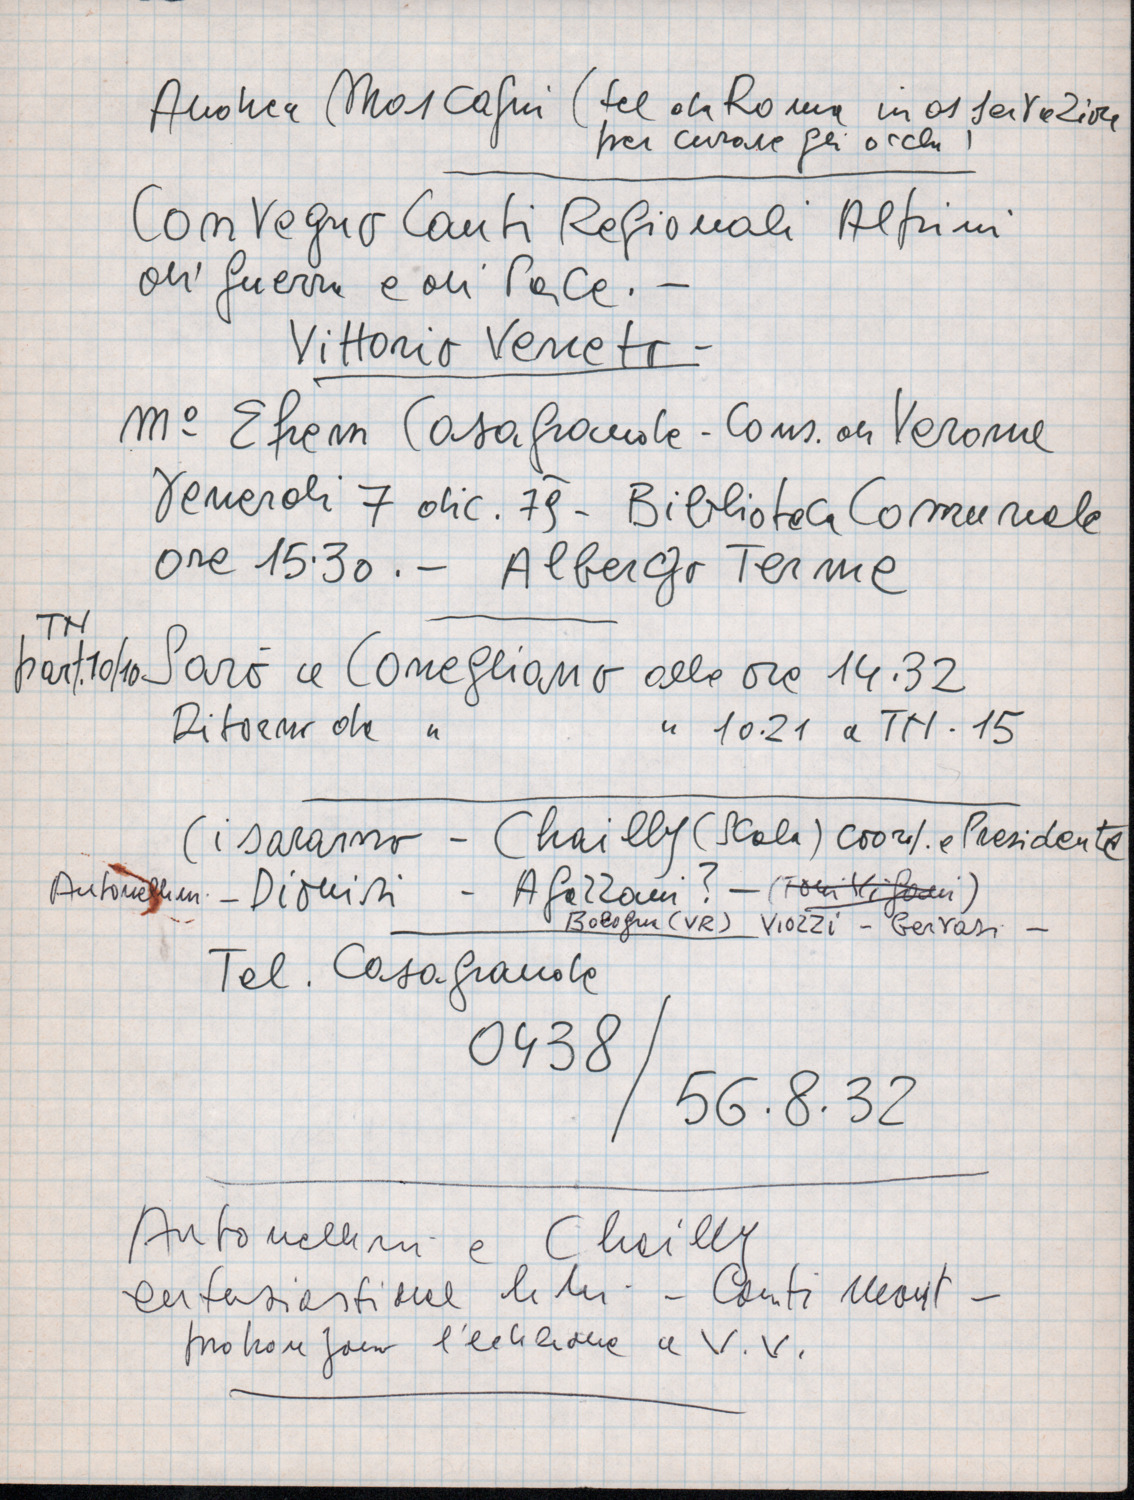 Andrea Mascagni (tel da Roma in osservazione
per curare gli occhi)
Convegno Canti Regionali Alpini
di guerra e di Pace. –
Vittorio Veneto –
Mº Efrem Casagrande - Cons. di Verona
Venerdi 7 dic. 79 - Biblioteca Comunale
ore 15.30. – Albergo Terme
TN
part. 10/10 Sarò a Conegliano alle ore 14.32
Ritorno da " " 10.21 a TN. 15
Ci saranno – Chailly (Scala) coord. e Presidente
Antonellini – Dionisi - Agazzani? – (Toni Vigani)
Bologna (VR) Viozzi – Gervasi –
Tel. Casagrande
0438/
56.8.32
Antonellini e Chailly
dei – Canti mont –
l'edizione a V.V.